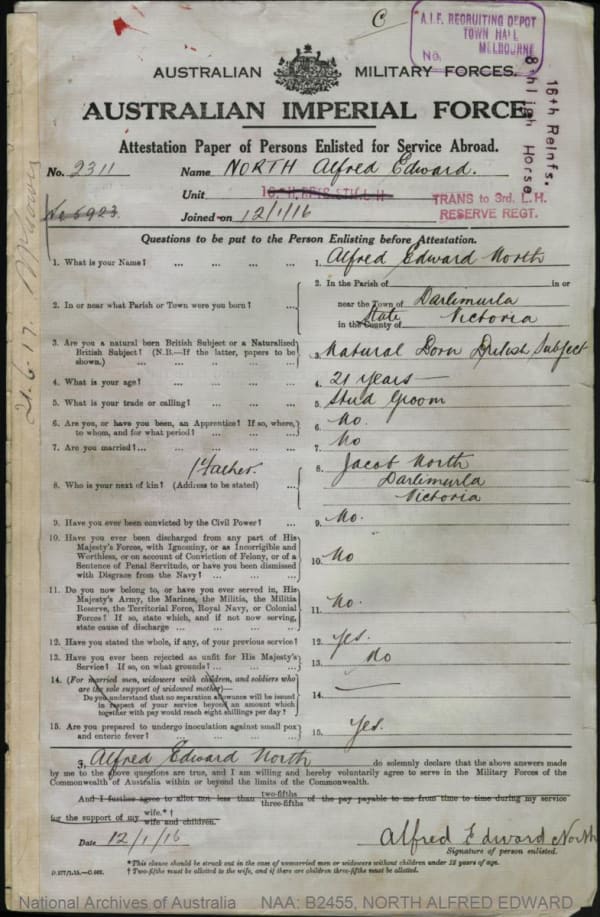 C
A.I.F. RECRUITING DEPOT
TOWN HALL
MELBOURNE
No.
AUSTRALIAN MILITARY FORCES.
AUSTRALIAN IMPERIAL FORCE
16th Reinfs.
8th Light Horse
Attestation Paper of Persons Enlisted for Service Abroad.
No. 2311 Name NORTH Alfred Edward.
Unit
TRANS to 3rd. L.H.
RESERVE REGT.
No 6923.
Joined on 12/1/16
21.6.17.
Questions to be put to the Person Enlisting before Attestation.
1. What is your Name? ... ... ... ... 1. Alfred Edward North
2. In or near what Parish or Town were you born? ... 2. In the Parish of in or
near the Town of Darlimurla
in the County of State Victoria
3. Are you a natural born British Subject or a Naturalized
British Subject? (N.B.—If the latter, papers to be
shown.) ... ... ... ... 3. Natural Born British Subject
4. What is your age? ... ... ... ... 4. 21 years —
5. What is your trade or calling? ... ... ... 5. Stud Groom
6. Are you, or have you been, an Apprentice? If so, where,
to whom, and for what period? ... ... ... 6. No.
7. Are you married?... ... ... ... ... 7. No
Father.
8. Who is your next of kin? (Address to be stated) ... 8. Jacob North
Darlimurla
Victoria
9. Have you ever been convicted by the Civil Power? ... 9. No.
10. Have you ever been discharged from any part of His
Majesty's Forces, with Ignominy, or as Incorrigible and
Worthless, or on account of Conviction of Felony, or of a
Sentence of Penal Servitude, or have you been dismissed
with Disgrace from the Navy? ... ... ... 10. No
11. Do you now belong to, or have you ever served in, His
Majesty's Army, the Marines, the Militia, the Militia
Reserve, the Territorial Force, Royal Navy, or Colonial
Forces? If so, state which, and if not now serving,
state cause of discharge ... ... ... ... 11. No.
12. Have you stated the whole, if any, of your previous service? 12. Yes.
13. Have you ever been rejected as unfit for His Majesty's
Service? If so, on what grounds? ... ... ... 13. No
14. (For married men, widowers with children, and soldiers who
are the sole support of widowed mother)—
Do you understand that no separation allowance will be issued
in respect of your service beyond an amount which
together with pay would reach eight shillings per day? 14. —
15. Are you prepared to undergo inoculation against small pox
and enteric fever? ... ... ... ... 15. Yes.
I, Alfred Edward North do solemnly declare that the above answers made
by me to the above questions are true, and I am willing and hereby voluntarily agree to serve in the Military Forces of the
Commonwealth of Australia within or beyond the limits of the Commonwealth.
And I further agree to allot not less than two-fifths three-fifths of the pay payable to me from time to time during my service
for the support of my wife.*† wife and children.
Date 12/1/16 Alfred Edward North
Signature of person enlisted.
*This clause should be struck out in the case of unmarried men or widowers without children under 18 years of age.
† Two-fifths must be allotted to the wife, and if there are children three-fifths must be allotted.
National Archives of Australia NAA: B2455, NORTH ALFRED EDWARD